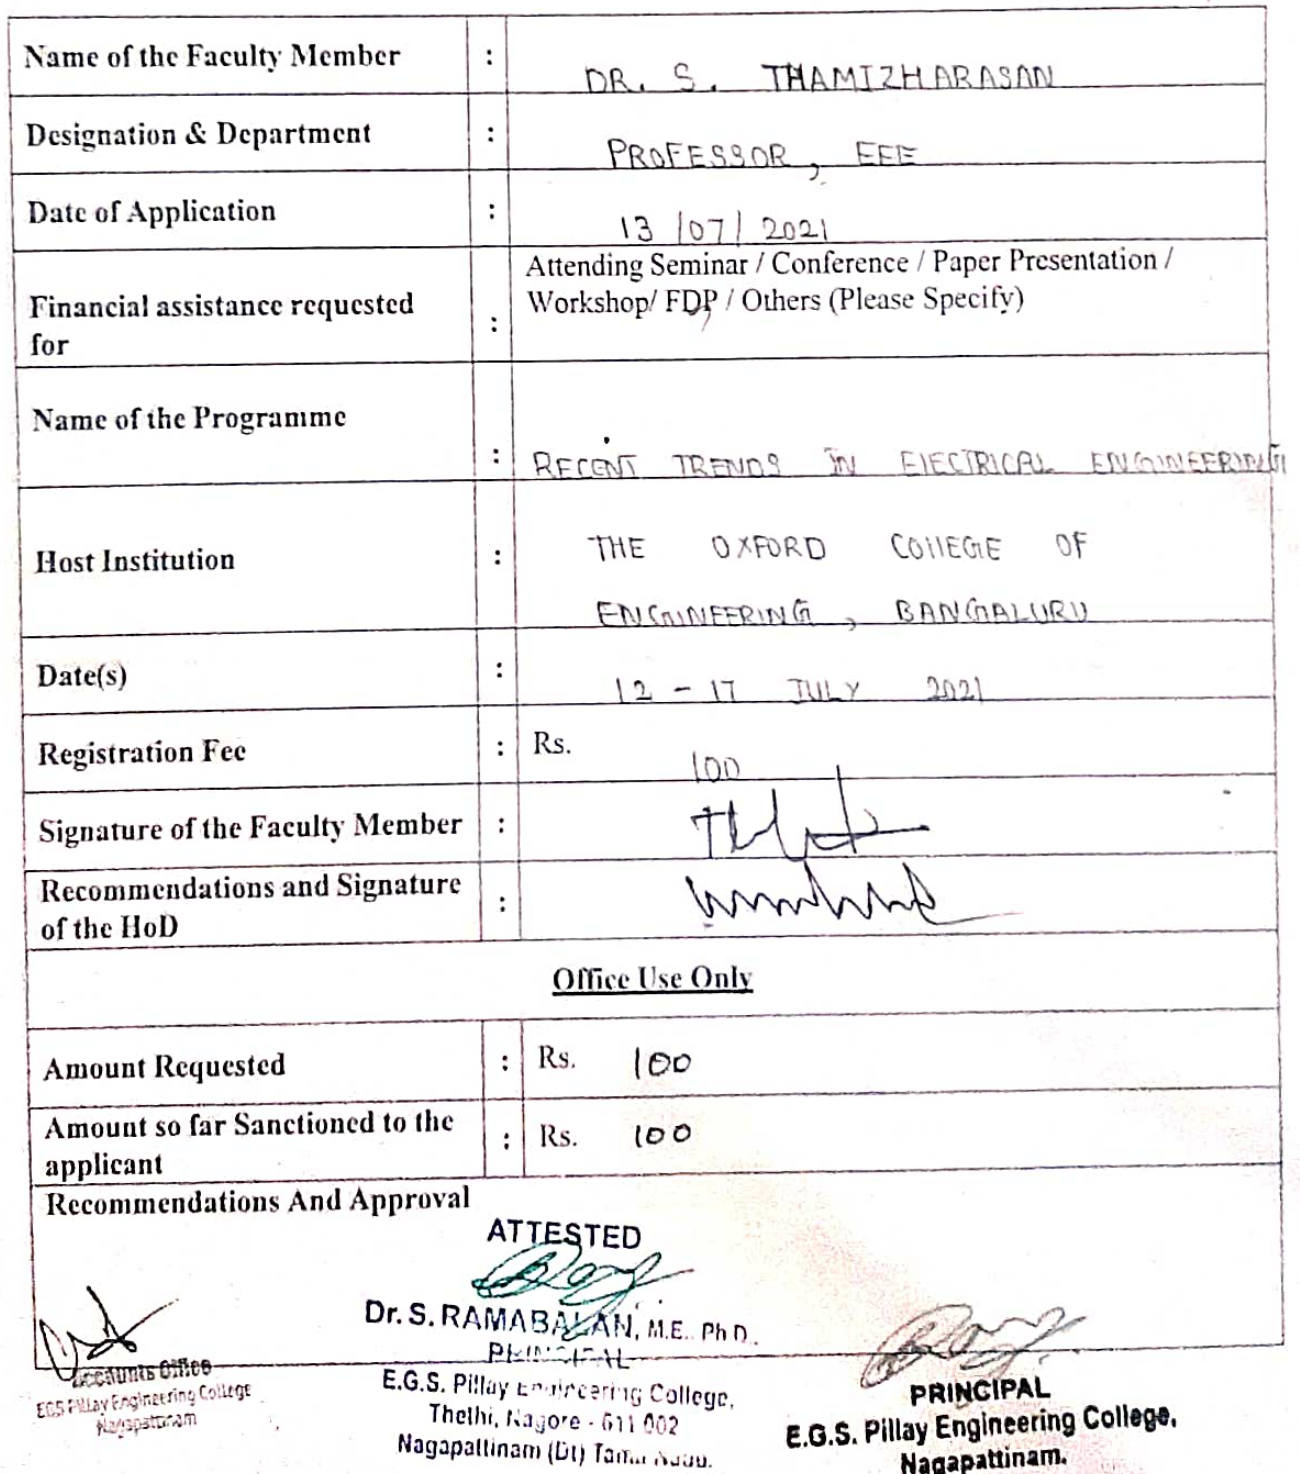 Name of the Faculty Member : DR. S. THAMIZHARASAN
Designation & Department : PROFESSOR, EEE
Date of Application : 13/07/2021
Financial assistance requested for : Attending Seminar / Conference / Paper Presentation /
Workshop/ FDP / Others (Please Specify)
Name of the Programme : RECENT TRENDS IN ELECTRICAL ENGINEERING
Host Institution : THE OXFORD COLLEGE OF
ENGINEERING, BANGALURU
Date(s) : 12 - 17 JULY 2021
Registration Fee : Rs. 100
Signature of the Faculty Member :
Recommendations and Signature
of the HoD :
Office Use Only
Amount Requested : Rs. 100
Amount so far Sanctioned to the
applicant : Rs. 100
Recommendations And Approval
ATTESTED
Dr. S. RAMABALAN, M.E. Ph D.
PRINCIPAL
E.G.S. Pillay Engineering College,
Thethi, Nagore - 611 002
Nagapattinam (Dt) Tamil Nadu.
Accounts Office
EGS Pillay Engineering College
Nagapattinam
PRINCIPAL
E.G.S. Pillay Engineering College,
Nagapattinam.